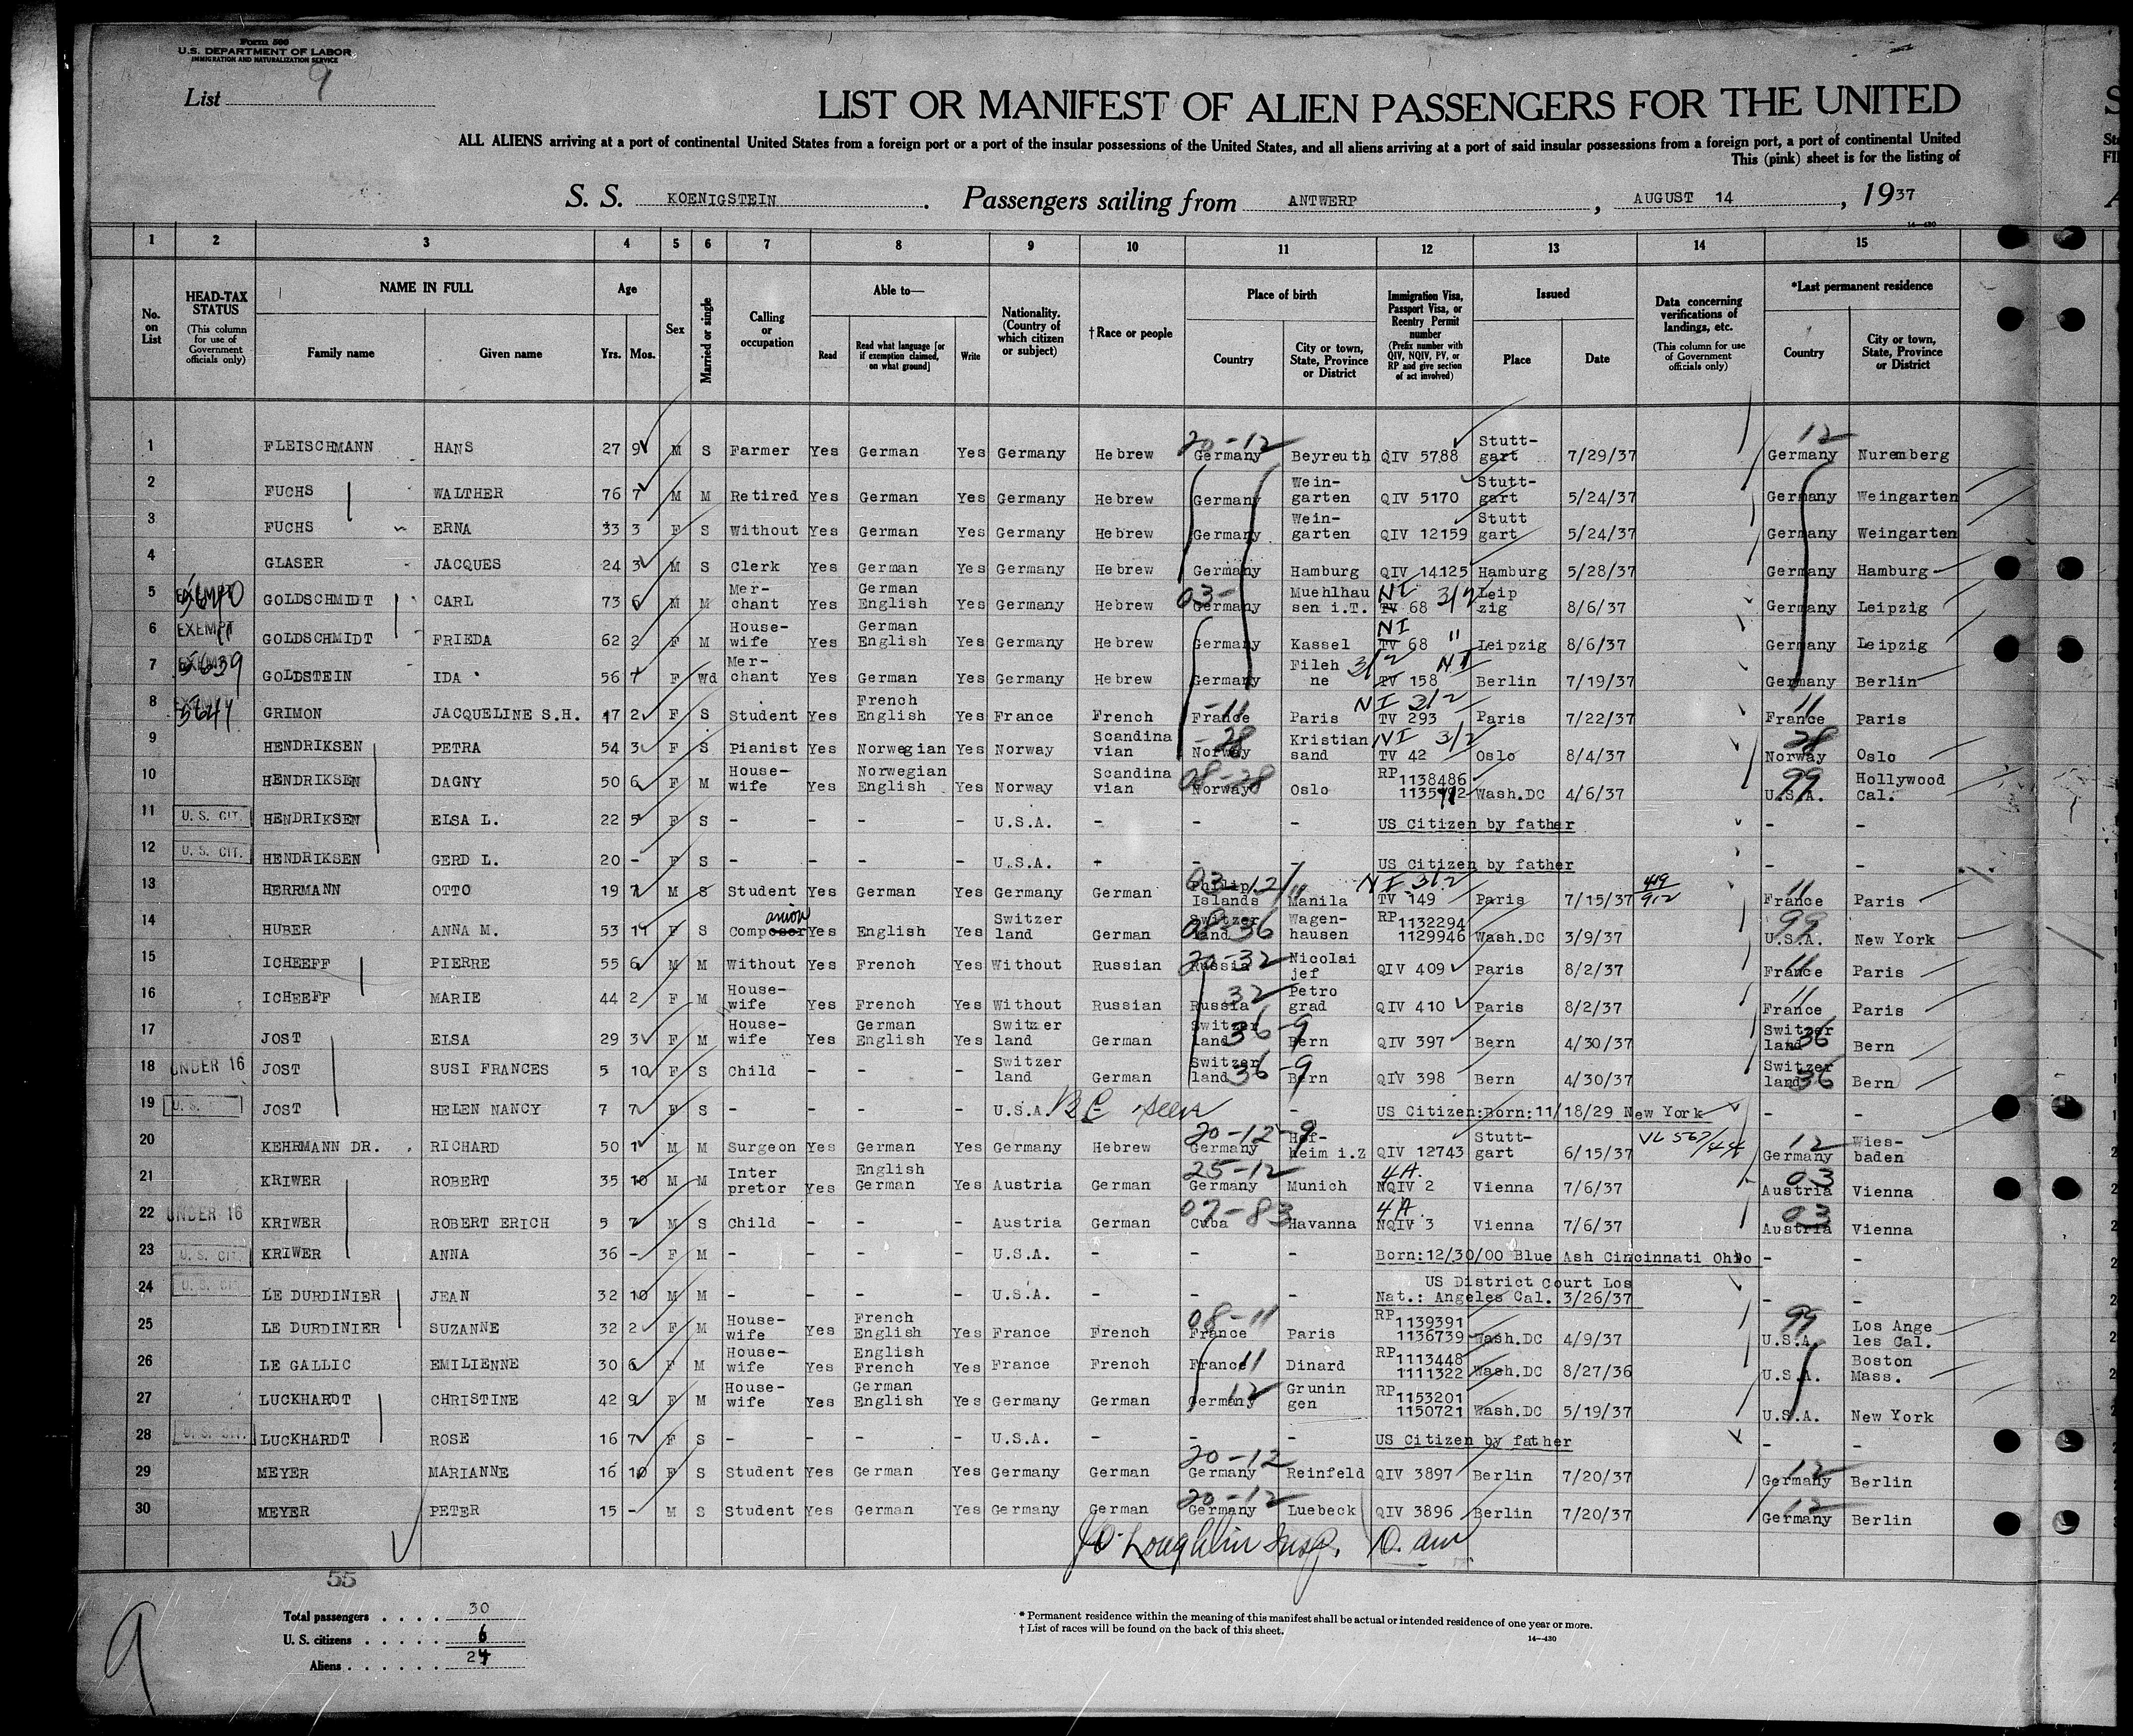 Form 500
U.S. DEPARTMENT OF LABOR
IMMIGRATION AND NATURALIZATION SERVICE
List 9
LIST OR MANIFEST OF ALIEN PASSENGERS FOR THE UNITED
ALL ALIENS arriving at a port of continental United States from a foreign port or a port of the insular possessions of the United States, and all aliens arriving at a port of said insular possessions from a foreign port, a port of continental United
This (pink) sheet is for the listing of
S. S. KOENIGSTEIN. Passengers sailing from ANTWERP, AUGUST 14, 1937
14—430
1 2 3 4 5 6 7 8 9 10 11 12 13 14 15
No. on List
HEAD-TAX STATUS (This column for use of Government officials only)
NAME IN FULL Family name Given name
Age Yrs. Mos.
Sex
Married or single
Calling or occupation
Able to— Read Read what language [or if exemption claimed, on what ground] Write
Nationality. (Country of which citizen or subject)
† Race or people
Place of birth Country City or town, State, Province or District
Immigration Visa, Passport Visa, or Reentry Permit number (Prefix number with QIV, NQIV, PV, or RP and give section of act involved)
Issued Place Date
Data concerning verifications of landings, etc. (This column for use of Government officials only)
*Last permanent residence Country City or town, State, Province or District
1 FLEISCHMANN HANS 27 9 M S Farmer Yes German Yes Germany Hebrew 20-12 Germany Beyreuth QIV 5788 Stutt-gart 7/29/37 12 Germany Nuremberg
2 FUCHS WALTHER 76 7 M M Retired Yes German Yes Germany Hebrew Germany Wein-garten QIV 5170 Stutt-gart 5/24/37 Germany Weingarten
3 FUCHS ERNA 33 3 F S Without Yes German Yes Germany Hebrew Germany Wein-garten QIV 12159 Stutt gart 5/24/37 Germany Weingarten
4 GLASER JACQUES 24 3 M S Clerk Yes German Yes Germany Hebrew Germany Hamburg QIV 14125 Hamburg 5/28/37 Germany Hamburg
5 EXEMPT GOLDSCHMIDT CARL 73 6 M M Mer-chant Yes German English Yes Germany Hebrew 03- Germany Muehlhau sen i.T. NI 3/2 TV 68 Leip zig 8/6/37 Germany Leipzig
6 EXEMPT GOLDSCHMIDT FRIEDA 62 2 F M House-wife Yes German English Yes Germany Hebrew Germany Kassel NI TV 68 " Leipzig 8/6/37 Germany Leipzig
7 5639 GOLDSTEIN IDA 56 7 F Wd Mer-chant Yes German Yes Germany Hebrew Germany Fileh ne 3/2 NI TV 158 Berlin 7/19/37 Germany Berlin
8 5641 GRIMON JACQUELINE S.H. 17 2 F S Student Yes French English Yes France French -11 France Paris NI 3/2 TV 293 Paris 7/22/37 11 France Paris
9 HENDRIKSEN PETRA 54 3 F S Pianist Yes Norwegian Yes Norway Scandina vian -28 Norway Kristian sand NI 3/2 TV 42 Oslo 8/4/37 28 Norway Oslo
10 HENDRIKSEN DAGNY 50 6 F M House-wife Yes Norwegian English Yes Norway Scandina vian 08-28 Norway Oslo RP 1138486 Wash.DC 4/6/37 99 U.S.A. Hollywood Cal.
11 U. S. CIT. HENDRIKSEN ELSA L. 22 5 F S - - - - U.S.A. - - - US Citizen by father - -
12 U. S. CIT. HENDRIKSEN GERD L. 20 - F S - - - - U.S.A. - - - US Citizen by father - -
13 HERRMANN OTTO 19 7 M S Student Yes German Yes Germany German 03 12 Philip. Islands Manila NI 3/2 TV 149 Paris 7/15/37 419 912 11 France Paris
14 HUBER ANNA M. 53 11 F S Companion Yes English Yes Switzer land German 08-36 Switzer land Wagen-hausen RP 1132294 1129946 Wash.DC 3/9/37 99 U.S.A. New York
15 ICHEEFF PIERRE 55 6 M M Without Yes French Yes Without Russian 20-32 Russia Nicolai jef QIV 409 Paris 8/2/37 11 France Paris
16 ICHEEFF MARIE 44 2 F M House-wife Yes French Yes Without Russian 32 Russia Petro grad QIV 410 Paris 8/2/37 11 France Paris
17 JOST ELSA 29 3 F M House-wife Yes German English Yes Switzer land German 36-9 Switzer land Bern QIV 397 Bern 4/30/37 36 Switzer land Bern
18 UNDER 16 JOST SUSI FRANCES 5 10 F S Child - - - Switzer land German 36-9 Switzer land Bern QIV 398 Bern 4/30/37 36 Switzer land Bern
19 U. S. JOST HELEN NANCY 7 7 F S - - - - U.S.A. BC seen - US Citizen:Born:11/18/29 New York - -
20 KEHRMANN DR. RICHARD 50 1 M M Surgeon Yes German Yes Germany Hebrew 20-12-9 Germany Hof-heim i.Z QIV 12743 Stutt-gart 6/15/37 12 Germany Wies-baden
21 KRIWER ROBERT 35 10 M M Inter pretor Yes English German Yes Austria German 25-12 Germany Munich 4A. NQIV 2 Vienna 7/6/37 03 Austria Vienna
22 UNDER 16 KRIWER ROBERT ERICH 5 7 M S Child - - - Austria German 07-83 Cuba Havanna 4A NQIV 3 Vienna 7/6/37 03 Austria Vienna
23 U. S. CIT. KRIWER ANNA 36 - F M - - - - U.S.A. - - - Born:12/30/00 Blue Ash Cincinnati Ohio - -
24 U. S. CIT. LE DURDINIER JEAN 32 10 M M - - - - U.S.A. - - - US District Court Los Nat.: Angeles Cal. 3/26/37 - -
25 LE DURDINIER SUZANNE 32 2 F M House-wife Yes French English Yes France French 08-11 France Paris RP 1139391 1136739 Wash.DC 4/9/37 99 U.S.A. Los Ange les Cal.
26 LE GALLIC EMILIENNE 30 6 F M House-wife Yes English French Yes France French 11 France Dinard RP 1113448 1111322 Wash.DC 8/27/36 U.S.A. Boston Mass.
27 LUCKHARDT CHRISTINE 42 9 F M House-wife Yes German English Yes Germany German 12 Germany Grunin gen RP 1153201 1150721 Wash.DC 5/19/37 U.S.A. New York
28 U. S. CIT. LUCKHARDT ROSE 16 7 F S - - - - U.S.A. - - - US Citizen by father - -
29 MEYER MARIANNE 16 10 F S Student Yes German Yes Germany German 20-12 Germany Reinfeld QIV 3897 Berlin 7/20/37 12 Germany Berlin
30 MEYER PETER 15 - M S Student Yes German Yes Germany German 20-12 Germany Luebeck QIV 3896 Berlin 7/20/37 12 Germany Berlin
Loughlin Insp.
55
Total passengers . . . . 30
U. S. citizens . . . . . 6
Aliens . . . . . . 24
9
* Permanent residence within the meaning of this manifest shall be actual or intended residence of one year or more.
† List of races will be found on the back of this sheet.
14—430